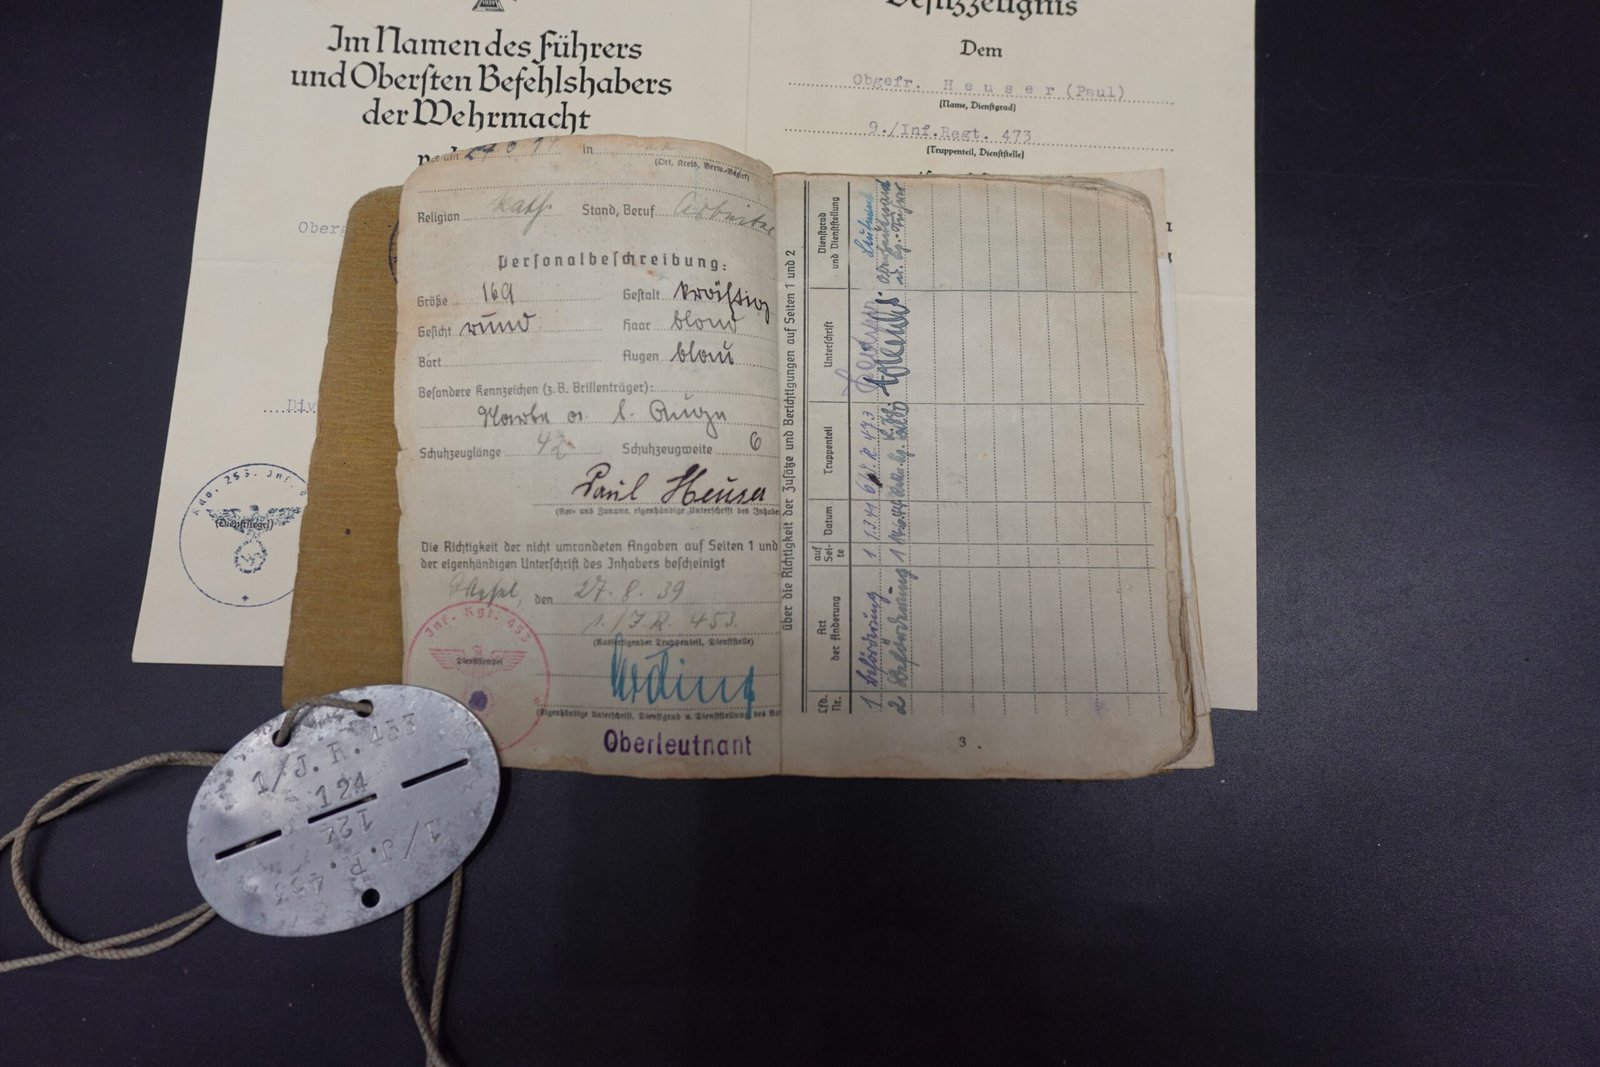 Im Namen des Führers
und Obersten Befehlshabers
der Wehrmacht
Besitzzeugnis
Dem
Obgefr. Heuser (Paul)
(Name, Dienstgrad)
9./Inf.Regt. 473
(Truppenteil, Dienststelle)
Div
(Dienstsiegel)
in
(Ort, Kreis, Verw.-Bezirk)
Religion kath. Stand, Beruf Arbeiter
Personalbeschreibung:
Größe 169 Gestalt kräftig
Gesicht rund Haar blond
Bart Augen blau
Besondere Kennzeichen (z.B. Brillenträger):
Narbe a. l. Auge
Schuhzeuglänge 42 Schuhzeugweite 6
Paul Heuser
(Vor- und Zuname, eigenhändige Unterschrift des Inhabe
Die Richtigkeit der nicht umrandeten Angaben auf Seiten 1 und
der eigenhändigen Unterschrift des Inhabers bescheinigt
den 27.8.39
1./J.R. 453.
(Ausfertigender Truppenteil, Dienststelle)
Inf. Rgt. 453
Dienststempel
(Eigenhändige Unterschrift, Dienstgrad u. Dienststellung des
Oberleutnant
über die Richtigkeit der Zusätze und Berichtigungen auf Seiten 1 und 2
Lfd. Nr.
Art der Änderung
auf Sei- te
Datum
Truppenteil
Unterschrift
Dienstgrad und Dienststellung
1 Beförderung 1 1.3.41 J.R. 473 Leutnant
2 Beförderung 1
3
1/J.R. 453
124
124
1/J.R. 453